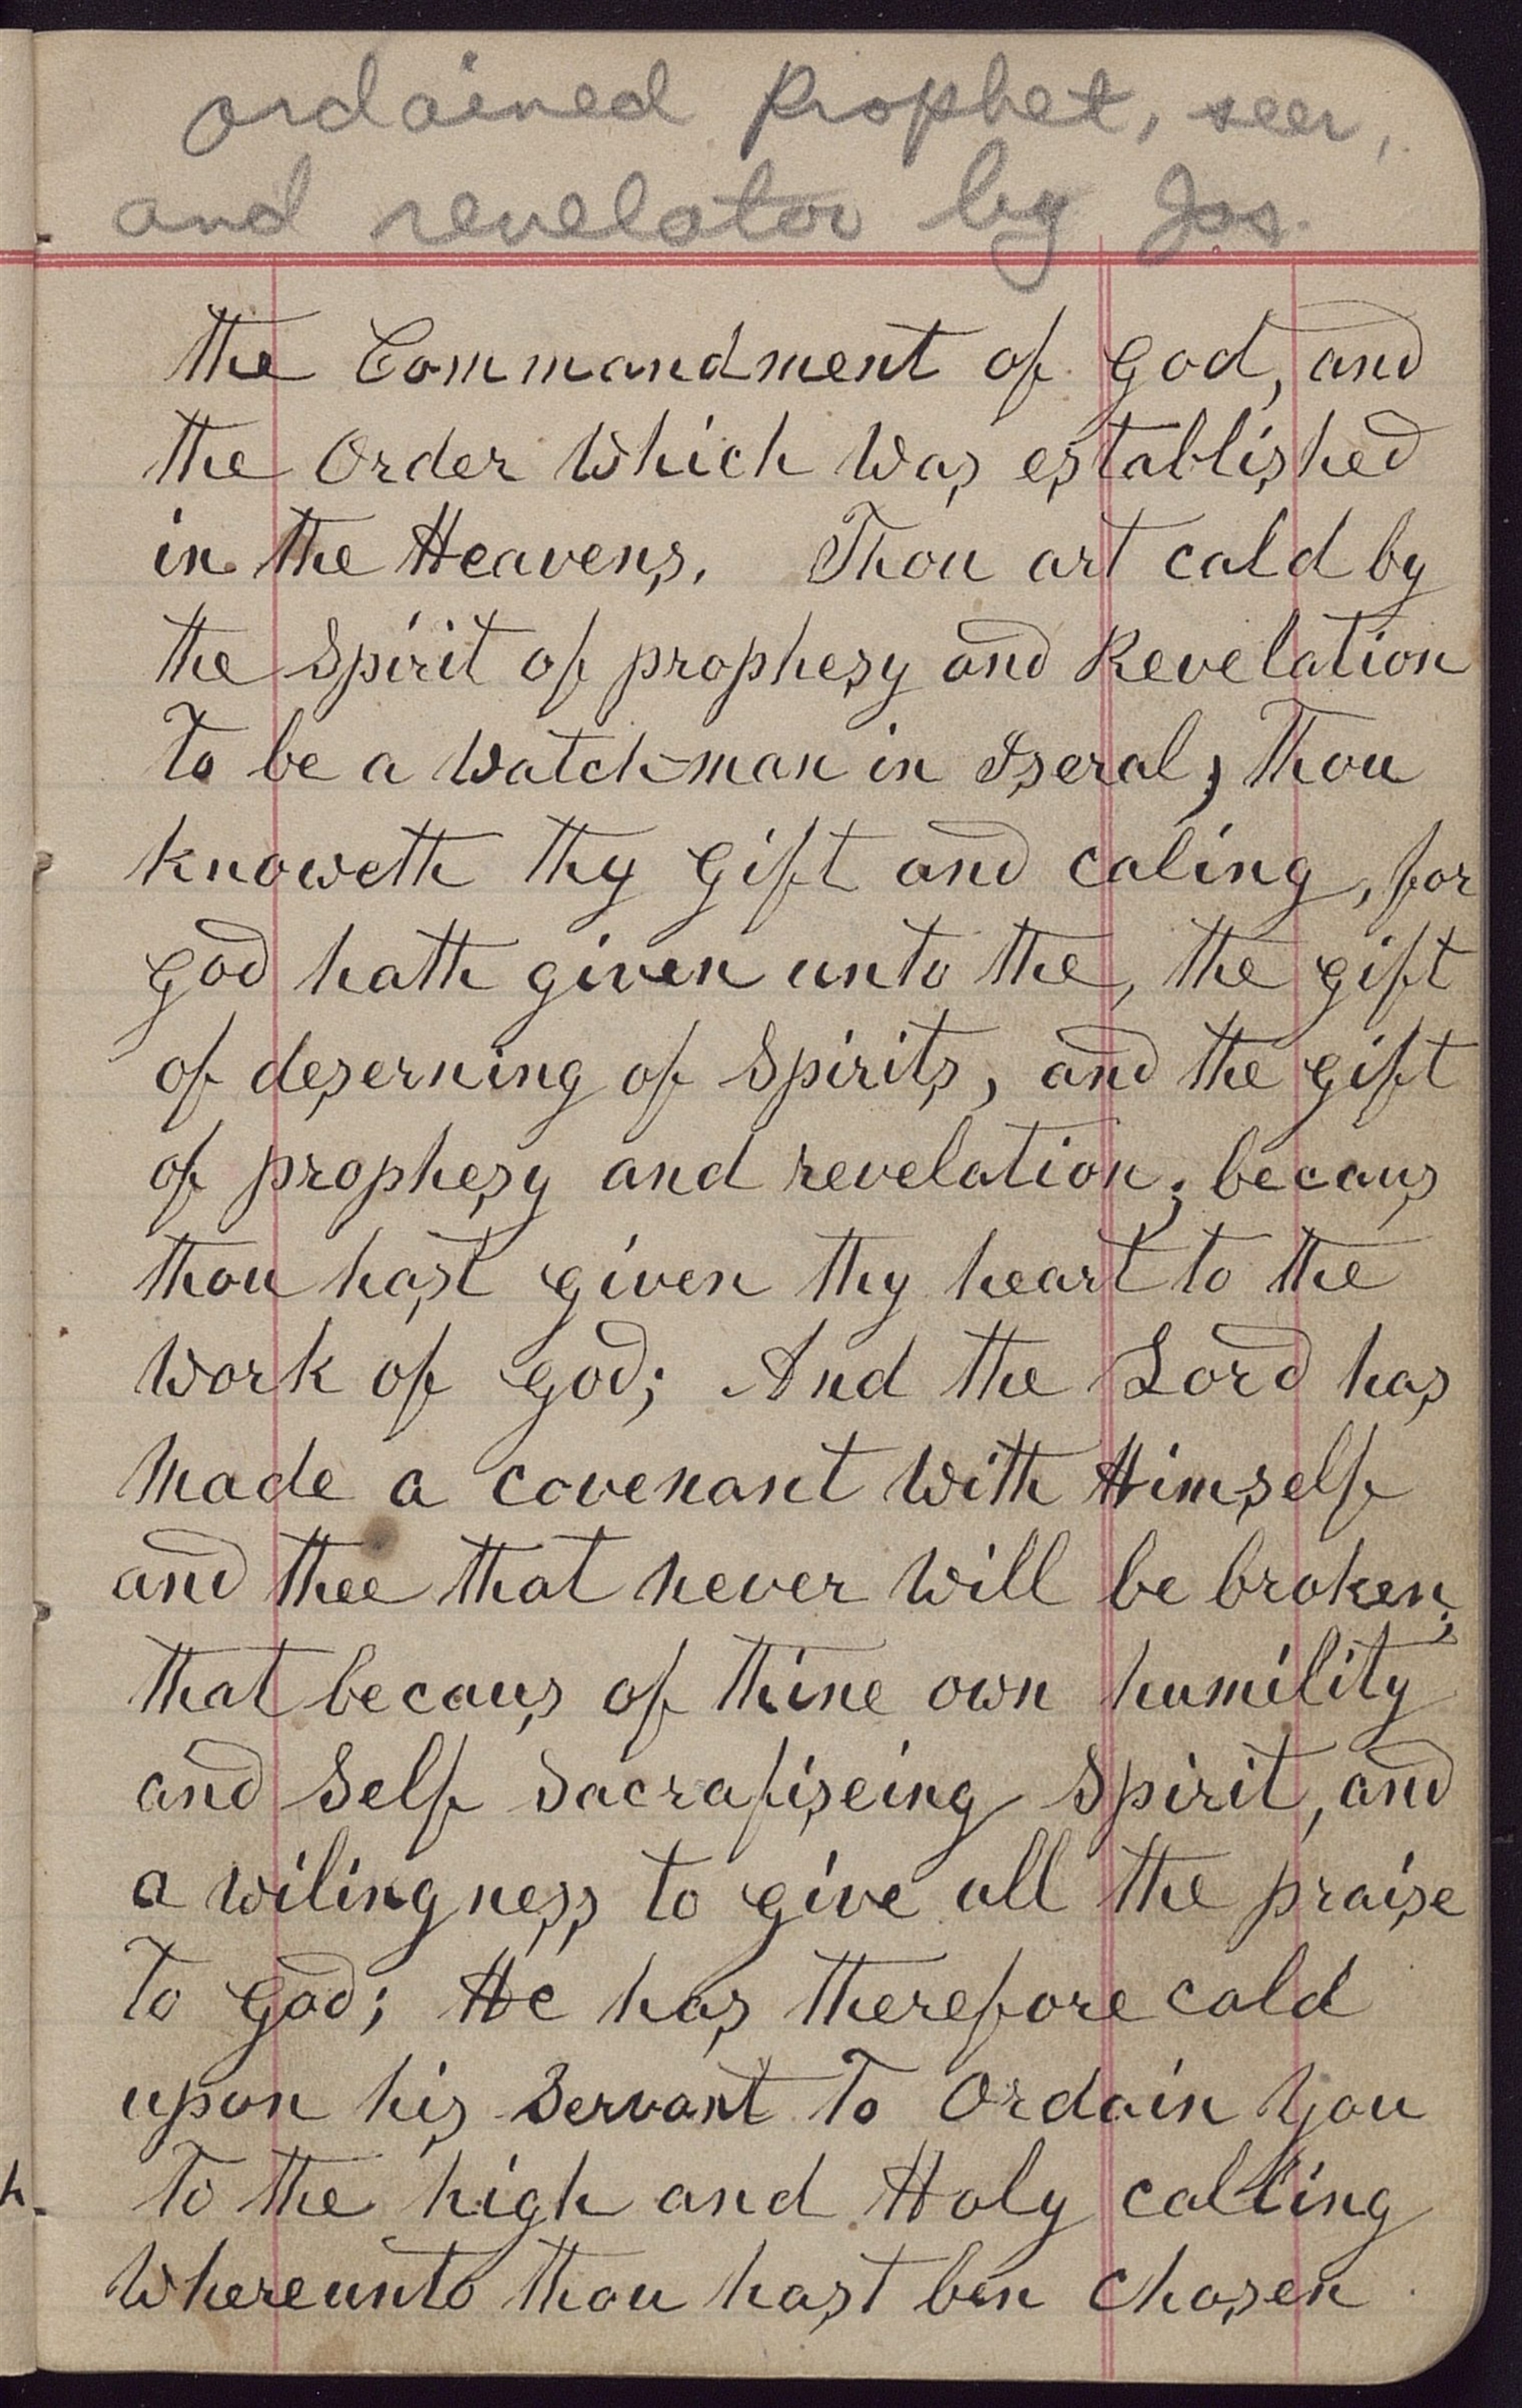 ordained prophet, seer,
and revelator by Jos.
the Commandment of God, and
the Order which was established
in the Heavens. Thou art cald by
the Spirit of prophesy and Revelation
to be a watch-man in Iseral; Thou
knoweth thy gift and caling, for
God hath given unto the, the gift
of deserning of Spirits, and the gift
of prophesy and revelation; becaus
thou hast given thy heart to the
work of God; And the Lord has
made a covenant with Himself
and thee that never will be broken;
that becaus of thine own humility
and Self Sacrafiseing Spirit, and
a wilingness to give all the praise
to God; He has therefore cald
upon his Servant To Ordain you
to the high and Holy calling
whereunto thou hast ben chosen
h.